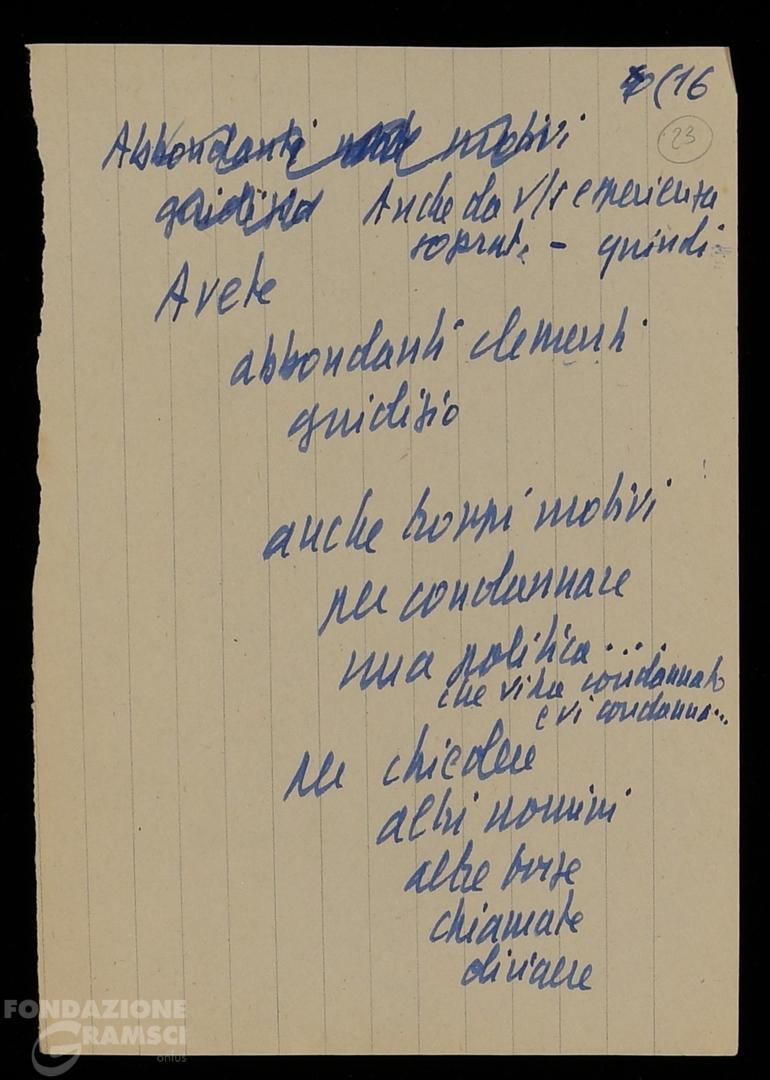 (16
23
Abbondanti motivi
giudizio Anche da v/s esperienza
soprat. - quindi
Avete
abbondanti elementi
giudizio
anche troppi motivi
per condannare
una politica...
che vi ha condannato
e vi condanna...
per chiedere
altri uomini
altre forze
chiamate
dirigere
FONDAZIONE
GRAMSCI
onlus